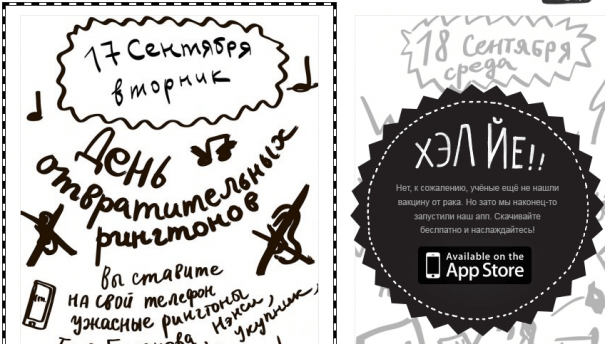 17 Сентября
вторник
День
отвратительных
рингтонов
вы ставите
на свой телефон
ужасные рингтоны
Нэнси,
укупник,
18 Сентября
среда
ХЭЛ ЙЕ!!
Нет, к сожалению, учёные ещё не нашли
вакцину от рака. Но зато мы наконец-то
запустили наш апп. Скачивайте
бесплатно и наслаждайтесь!
Available on the
App Store